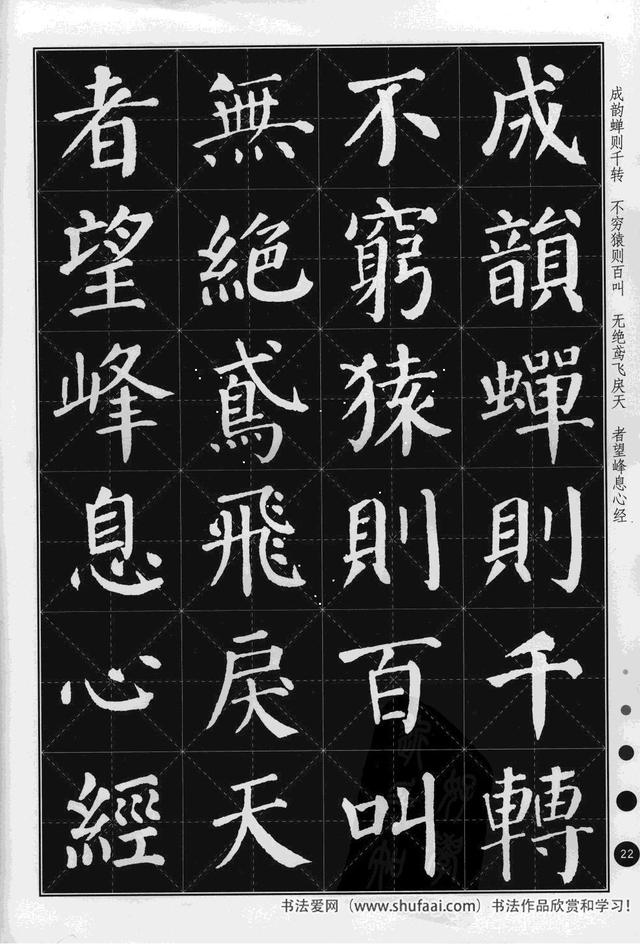 成韻蟬則千轉
不窮猿則百叫
無絕鳶飛戾天
者望峰息心經
成韵蝉则千转 不穷猿则百叫 无绝鸢飞戾天 者望峰息心经
22
书法爱网（www.shufaai.com）书法作品欣赏和学习！